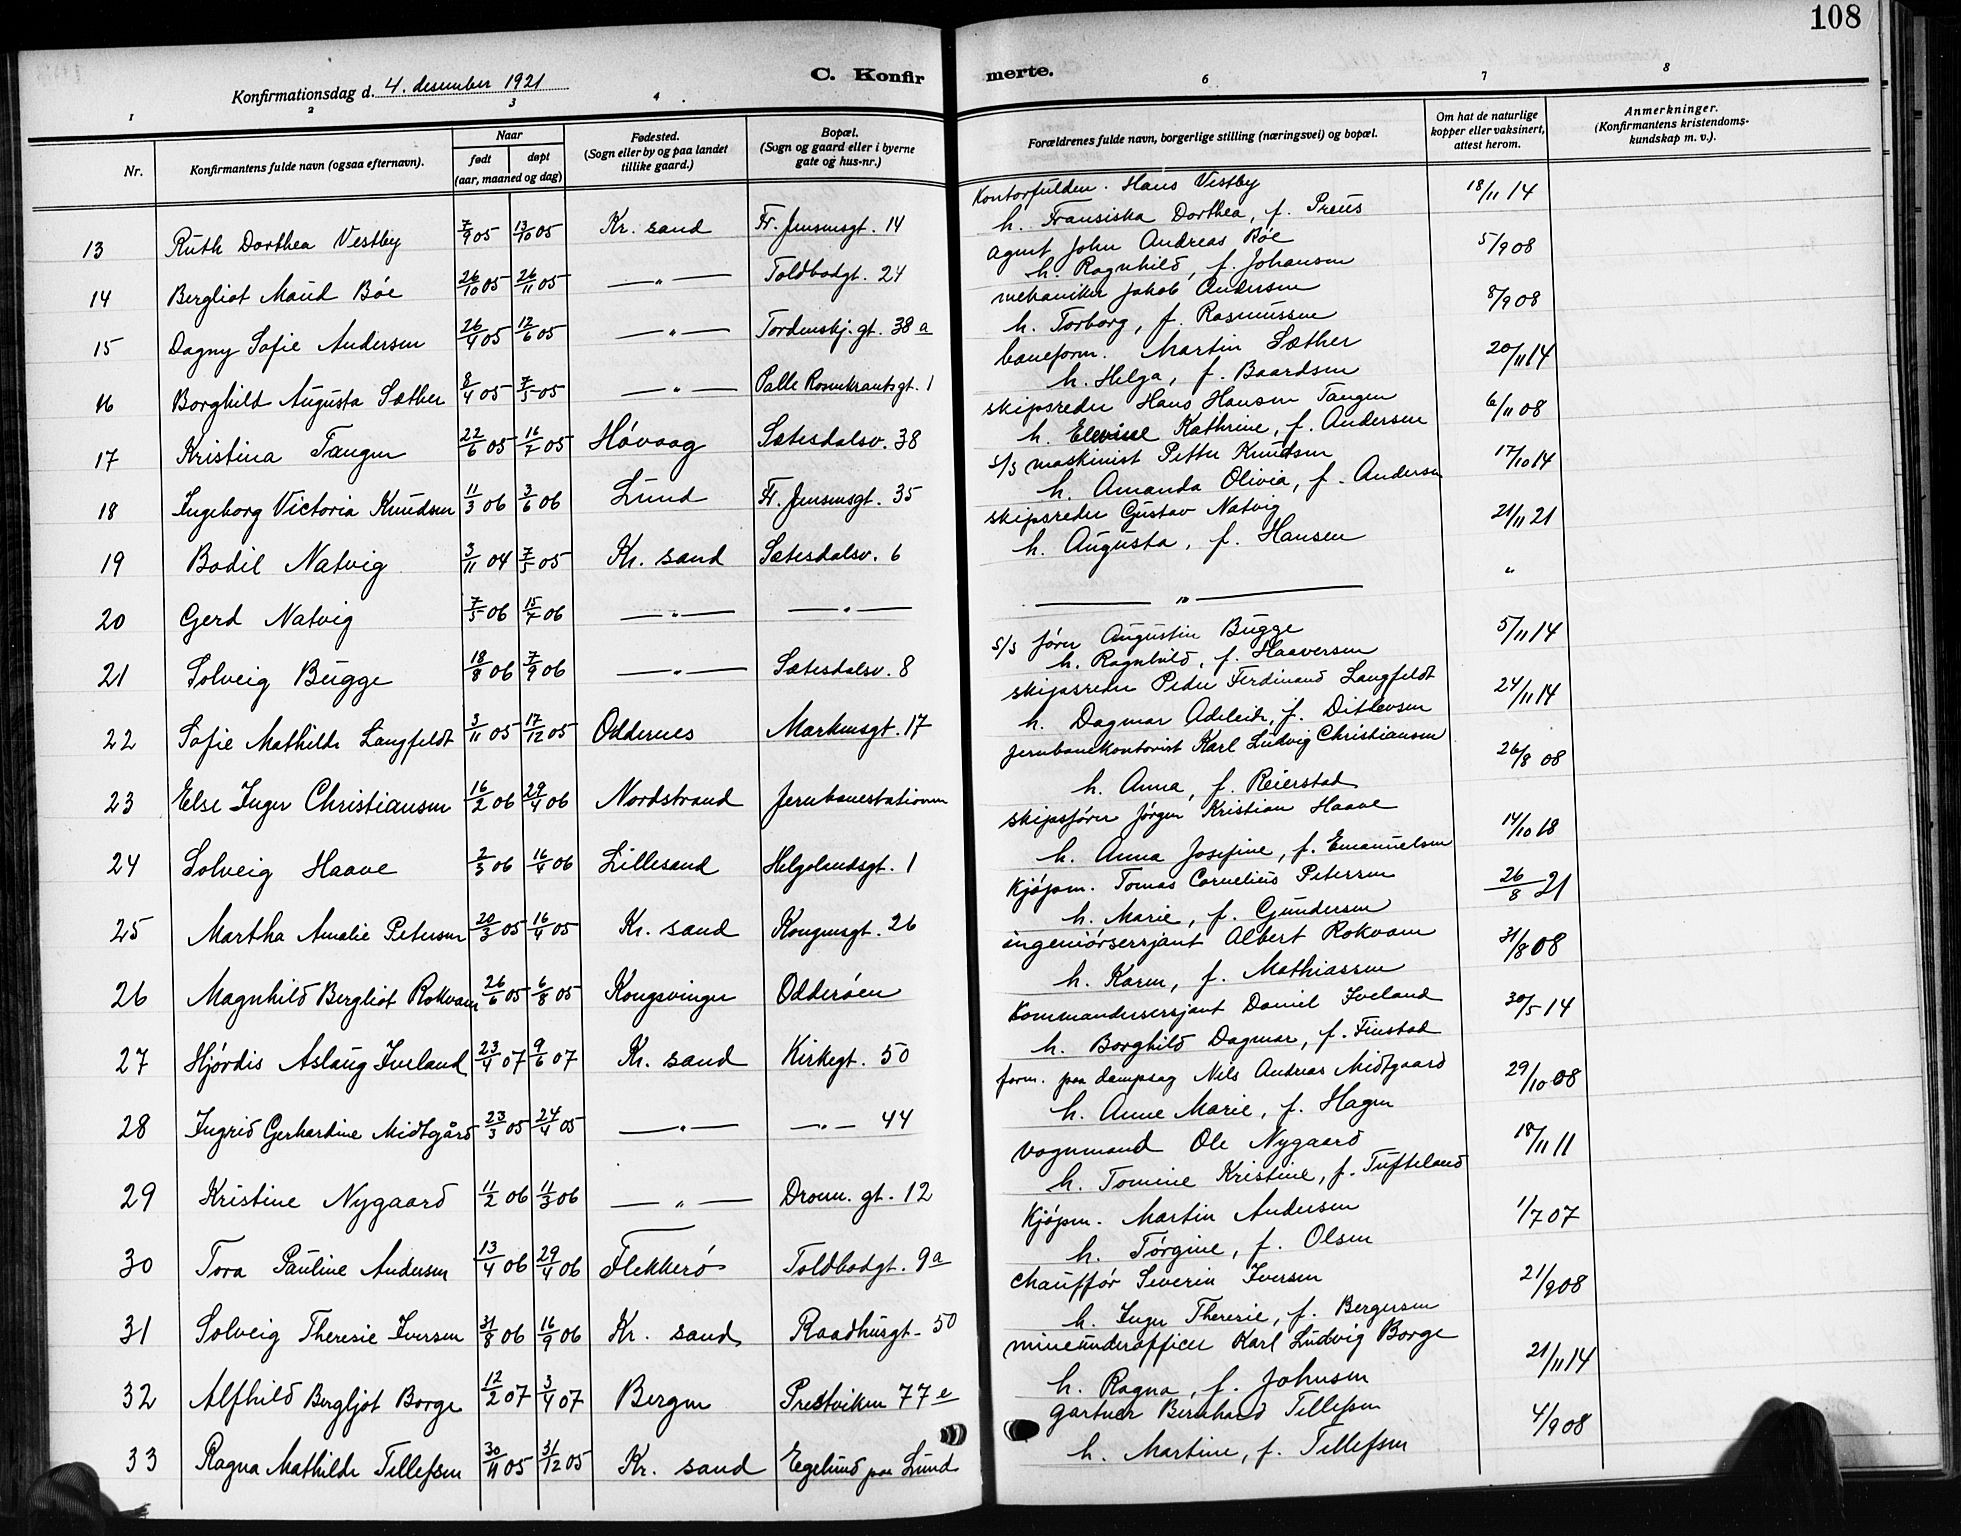 108
C. Konfirmerte.
Konfirmationsdag d. 4. desember 1921
1 2 3 4 6 7 8
Nr.
Konfirmantens fulde navn (ogsaa efternavn).
Naar
født døpt
(aar, maaned og dag)
Fødested.
(Sogn eller by og paa landet
tillike gaard.)
Bopæl.
(Sogn og gaard eller i byerne
gate og hus-nr.)
Forældrenes fulde navn, borgerlige stilling (næringsvei) og bopæl.
Om hat de naturlige
kopper eller vaksinert,
attest herom.
Anmerkninger.
(Konfirmantens kristendoms-
kundskap m. v.).
13 Ruth Dorthea Vestby 7/9 05 13/10 05 Kr. sand Fr. Jensensgt. 14 Kontorfulden. Hans Vestby 18/11 14
h. Fransiska Dorthea, f. Preus
14 Bergliot Maud Bøe 26/10 05 26/11 05 —"— Toldbodgt. 24 agent John Andreas Bøe 5/9 08
h. Ragnhild, f. Johansen
15 Dagny Sofie Andersen 26/4 05 12/6 05 —"— Tordenskj. gt. 38 a mekaniker Jakob Andersen 8/9 08
h. Torborg, f. Rasmussen
16 Borghild Augusta Sæther 8/4 05 7/5 05 —"— Palle Rosenkrantsgt. 1 baneform. Martin Sæther 20/11 14
h. Helga, f. Baardsen
17 Kristina Tangen 22/6 05 16/7 05 Høvaag Sætesdalsv. 38 skipsreder Hans Hansen Tangen 6/11 08
h. Elevine Kathrine, f. Andersen
18 Ingeborg Victoria Knudsen 11/3 06 3/6 06 Lund Fr. Jensensgt. 35 s/s maskinist Petter Knudsen 17/10 14
h. Amanda Olivia, f. Andersen
19 Bodil Natvig 3/11 04 7/5 05 Kr. sand Sætesdalsv. 6 skipsreder Gustav Natvig 21/11 21
h. Augusta, f. Hansen
20 Gerd Natvig 7/5 06 15/7 06 —"— —"— —"— "
21 Solveig Bugge 18/8 06 7/9 06 —"— Sætesdalsv. 8 s/s fører Augustin Bugge 5/11 14
h. Ragnhild, f. Haaversen
22 Sofie Mathilde Langfeldt 3/11 05 17/12 05 Oddernes Markensgt. 17 skipsreder Peder Ferdinand Langfeldt 24/11 14
h. Dagmar Adeleide, f. Ditlevsen
23 Else Inger Christiansen 16/2 06 29/4 06 Nordstrand Jernbanestationen jernbanekontorist Karl Ludvig Christiansen 26/8 08
h. Anna, f. Reierstad
24 Solveig Haave 2/3 06 16/4 06 Lillesand Helgolendsgt. 1 skipsfører Jørgen Kristian Haave 14/10 18
h. Anna Josefine, f. Emanuelsen
25 Martha Amalie Petersen 20/3 05 16/4 05 Kr. sand Kongensgt. 26 Kjøpm. Tomas Cornelius Petersen 26/8 21
h. Marie, f. Gundersen
26 Magnhild Bergliot Rokvam 26/6 05 6/8 05 Kongsvinger Odderøen ingeniørsersjant Albert Rokvam 31/8 08
h. Karen, f. Mathiassen
27 Hjørdis Aslaug Iveland 23/4 07 9/6 07 Kr. sand Kirkegt. 50 Kommandersersjant Daniel Iveland 30/5 14
h. Borghild Dagmar, f. Finstad
28 Ingrid Gerhardine Midtgård 23/3 05 24/4 05 —"— —"— 44 form. paa dampsag Nils Andreas Midtgaard 29/10 08
h. Anne Marie, f. Hagen
29 Kristine Nygaard 11/2 06 11/3 06 —"— Dronn. gt. 12 vognmand Ole Nygaard 18/11 11
h. Tomine Kristine, f. Tufteland
30 Tora Pauline Andersen 13/4 06 29/4 06 Flekkerø Toldbodgt. 9 a Kjøpm. Martin Andersen 1/7 07
h. Tørgine, f. Olsen
31 Solveig Theresie Iversen 31/8 06 16/9 06 Kr. sand Raadhusgt. 50 chauffør Severin Iversen 21/9 08
h. Inger Theresie, f. Bergersen
32 Alfhild Bergljot Borge 12/2 07 3/4 07 Bergen Prestviken 77 e mineunderofficer Karl Ludvig Borge 21/11 14
h. Ragna, f. Johnsen
33 Ragna Mathilde Tellefsen 30/11 05 31/12 05 Kr. sand Egelund paa Lund gartner Bernhard Tellefsen 4/9 08
h. Martine, f. Tellefsen